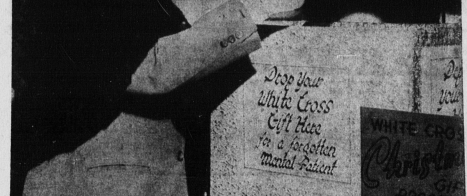 Drop Your
White Cross
Gift Here
for a forgotten
Mental Patient
Drop
your
WHITE CROSS
Christmas